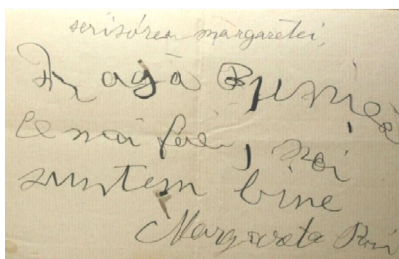 scrisórea margaretei,
Dragă Bunică
Ce mai faci, noi
suntem bine
Margareta